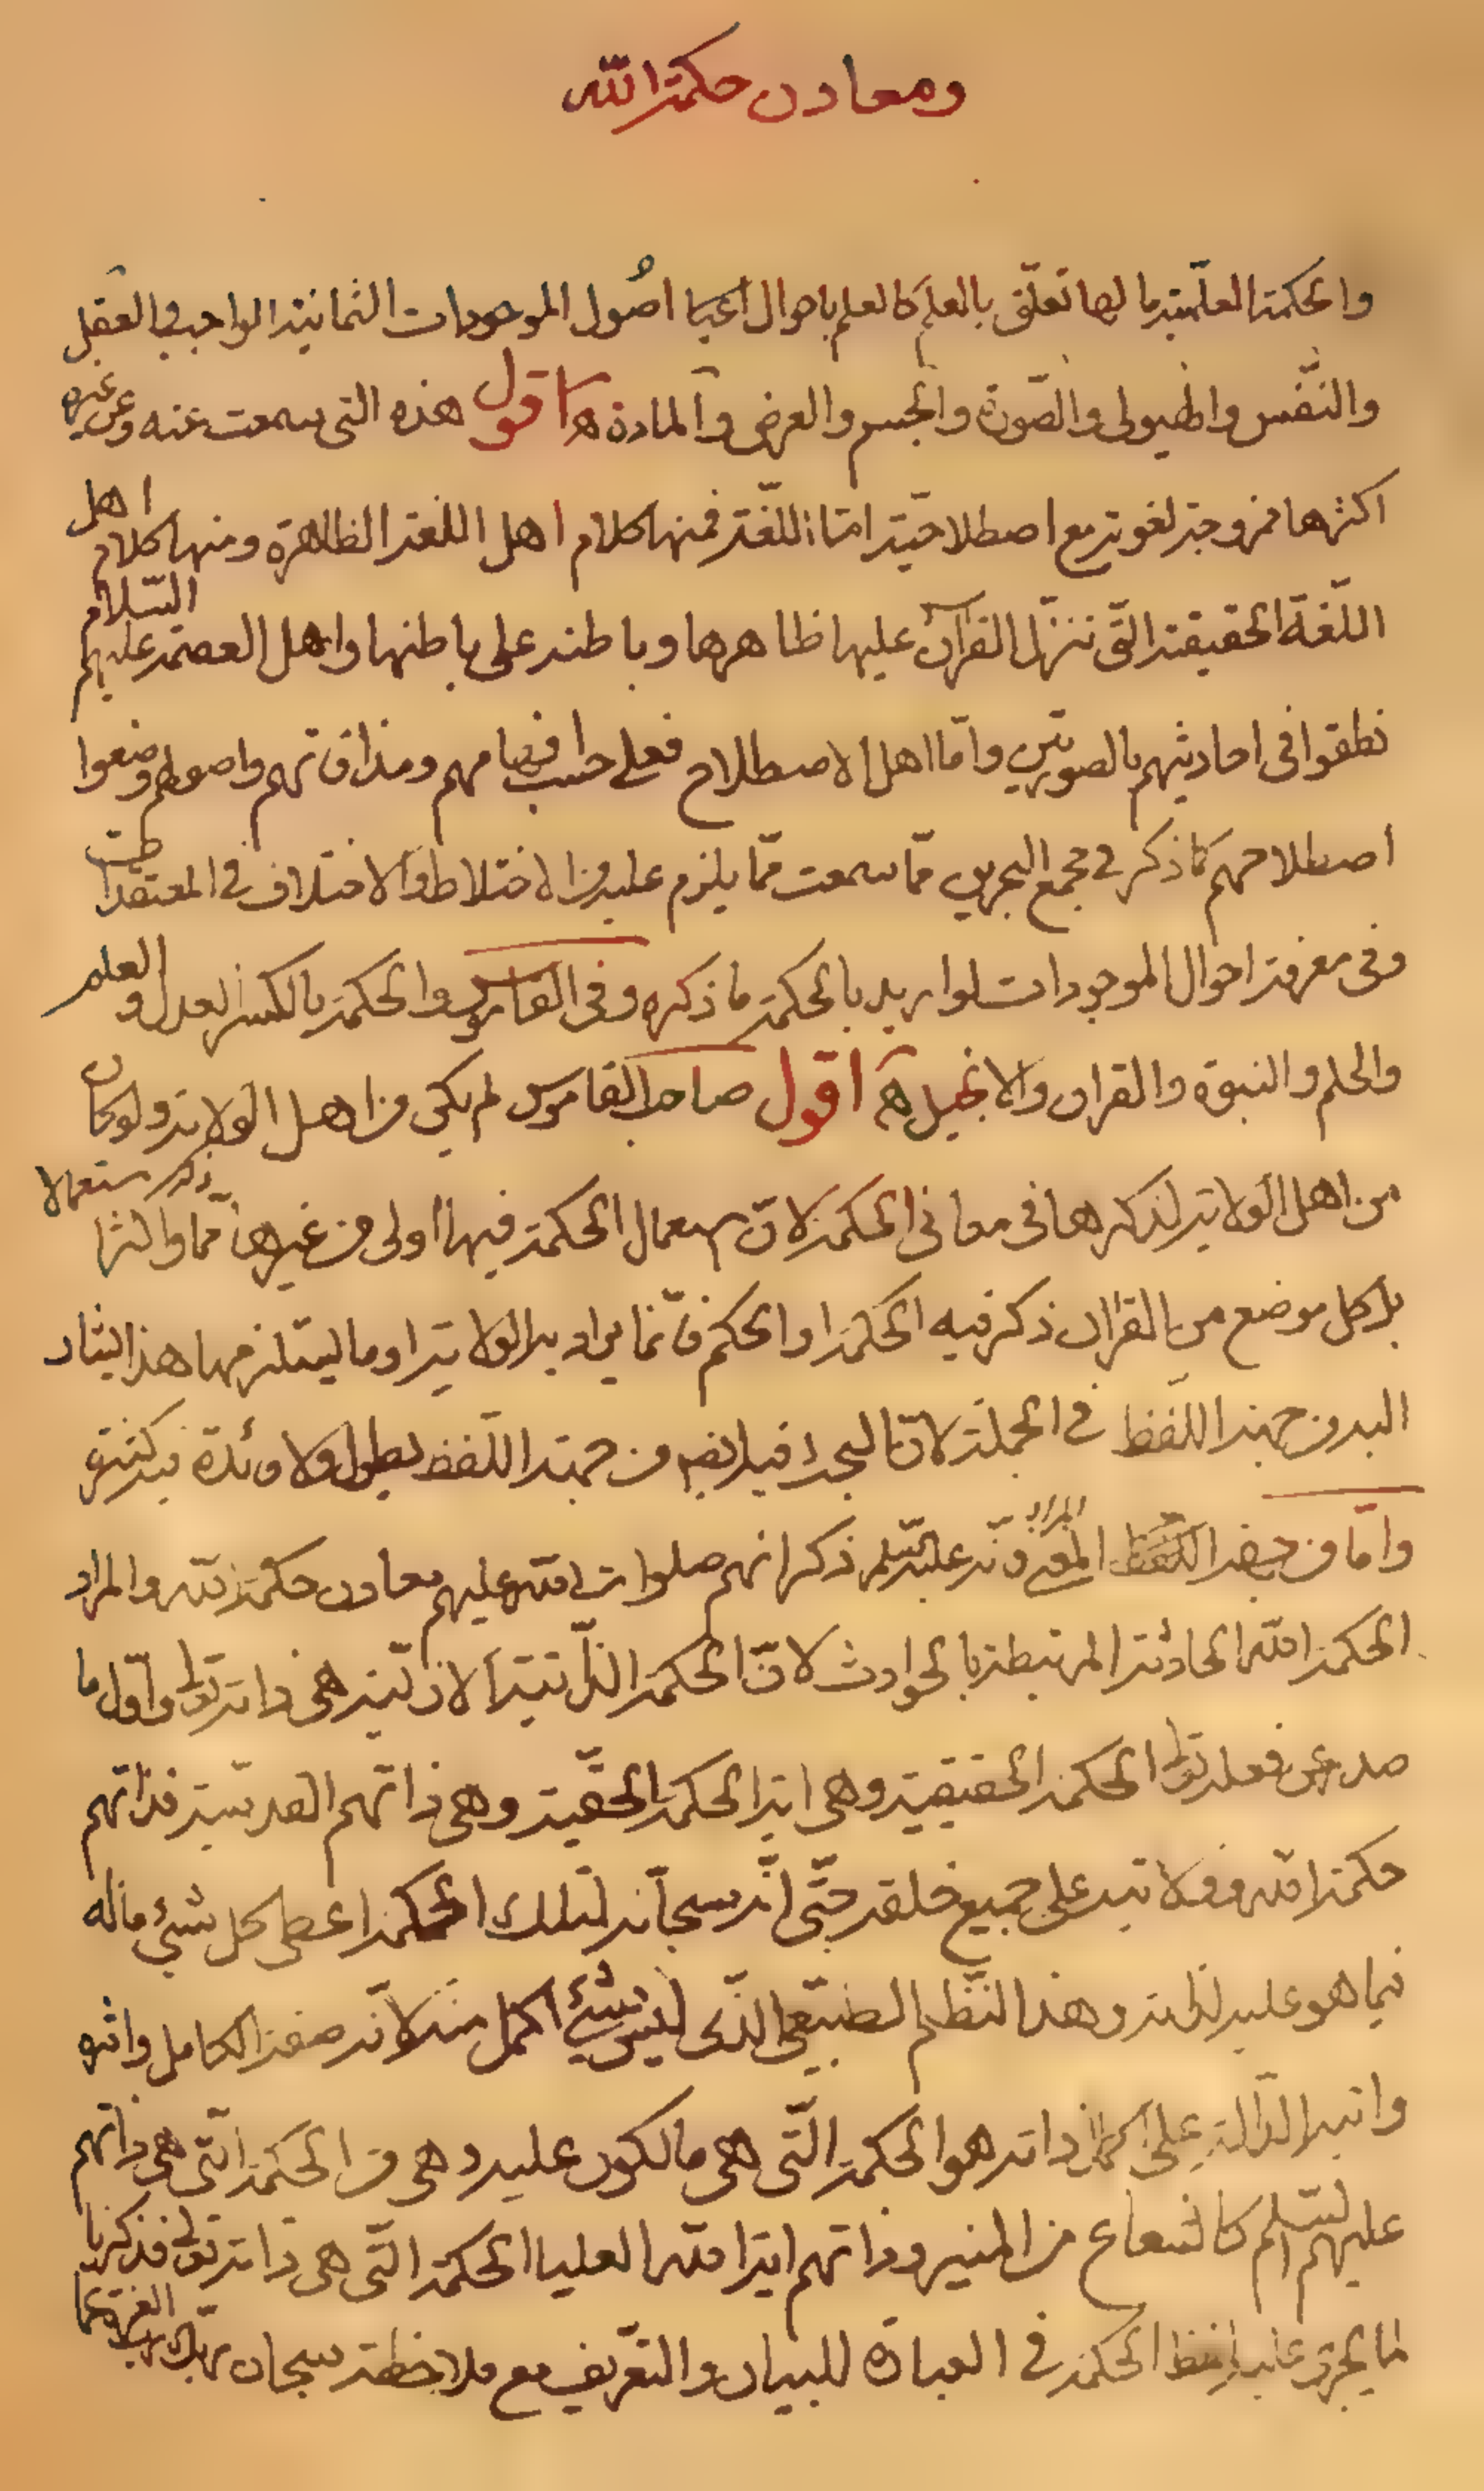 ومعادن حكمة الله
والحكمة العلمية ما لها تعلق بالعلم كالعلم باحوال اعيا اصول الموجودات الثمانية الواجب والعقل
والنفس والهيولى والصورة والجسم والعرض والمادة ه اقول هذه التى سمعت عنه وعن غيره
اكثرها ممزوجة لغوية مع اصطلاحية اما اللغة فمنها كلام اهل اللغة الظاهرة ومنها كلام اهل
اللغة الحقيقة التى نزل القرآن عليها ظاهرها وباطنه على باطنها واهل العصمة عليهم السلام
نطقوا فى احاديثهم بالصورتين واما اهل الاصطلاح فعلى حسب افهامهم ومذاقاتهم واصولهم وضعوا
اصطلاحهم كما ذكر فى مجمع البحرين مما سمعت مما يلزم عليه من الاختلاط والاختلاف فى المعتقدات
وفى معرفة احوال الموجودات لو اريد بالحكمة ما ذكره وفى القاموس والحكمة بالكسر العدل والعلم
والحلم والنبوة والقران والانجيل ه اقول صاحب القاموس لم يكن من اهل الولاية ولو كان
من اهل الولاية لذكرها فى معانى الحكمة لان استعمال الحكمة فيها اولى من غيرها مما ذكر واكثر استعمالا
بل كل موضع من القران ذكر فيه الحكمة او الحكم فانما يراد به الولاية او ما يستلزمها هذا يشار
اليه من جهة اللفظ فى الجملة لان البحث فيه ايضا من جهة اللفظ يطول ولا فائدة فيه كثيرة
واما من جهة المعنى المراد فانه عليه السلم ذكر انهم صلوات الله عليهم معادن حكمة الله والمراد
الحكمة الله الحادثة المرتبطة بالحوادث لان الحكمة الذاتية الازلية هى ذاته تعالى واول ما
صدر عن فعله تعالى الحكمة الحقيقية وهى اية الحكمة الحقية وهى ذاتهم القدسية فذاتهم
حكمة الله وولايته على جميع خلقه حتى انه سبحانه لتلك الحكمة اعطى كل شىء ما له
فيما هو عليه لذاته وهذا النظم الطبيعى الذى ليس شىء اكمل منه لانه صفة الكامل واثره
وايته الدالة على كمال ذاته هو الحكمة التى هى ما لكون عليه وهى من الحكمة التى هى ذاتهم
عليهم السلم كالشعاع من المنير وذاتهم اية الله العليا الحكمة التى هى ذاته تعالى فذكرنا
لما يجرى عليه لفظ الحكمة فى العبارة للبيان والتعريف مع ملاحظة سبحان ربك رب العزة عما